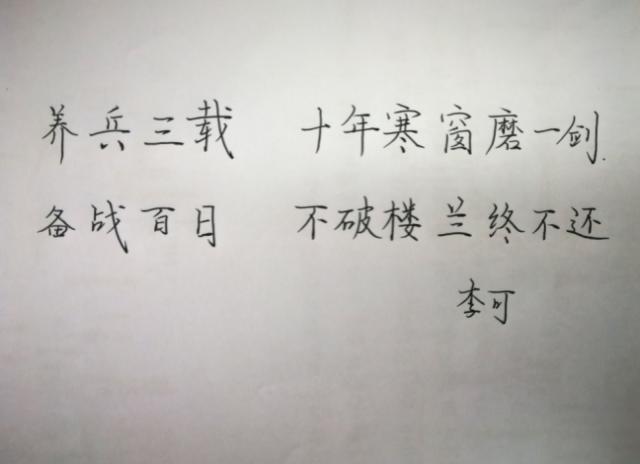 养兵三载 十年寒窗磨一剑.
备战百日 不破楼兰终不还
李可